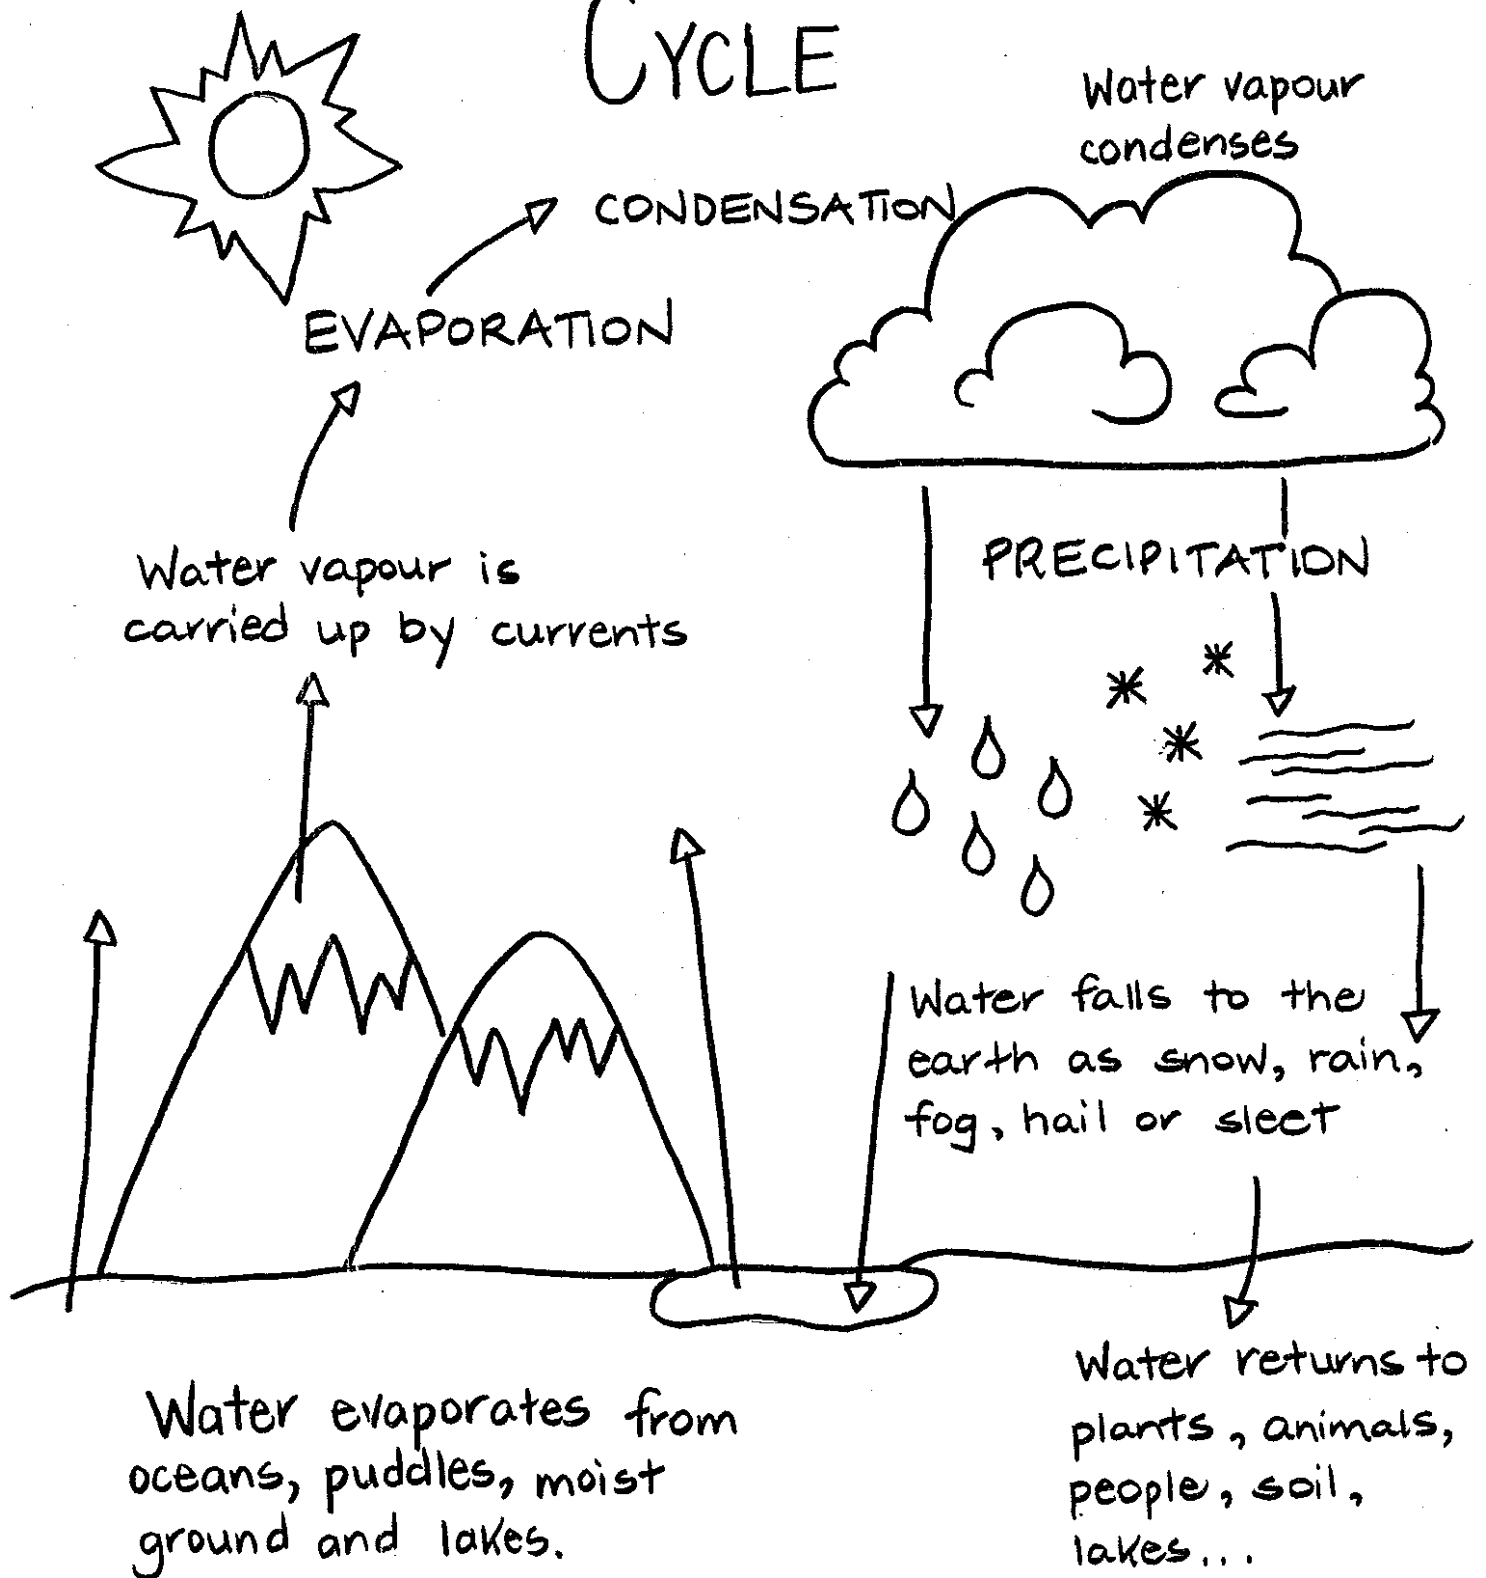 CYCLE
Water vapour
condenses
CONDENSATION
EVAPORATION
Water vapour is
carried up by currents
PRECIPITATION
Water falls to the
earth as snow, rain,
fog, hail or sleet
Water evaporates from
oceans, puddles, moist
ground and lakes.
Water returns to
plants, animals,
people, soil,
lakes...